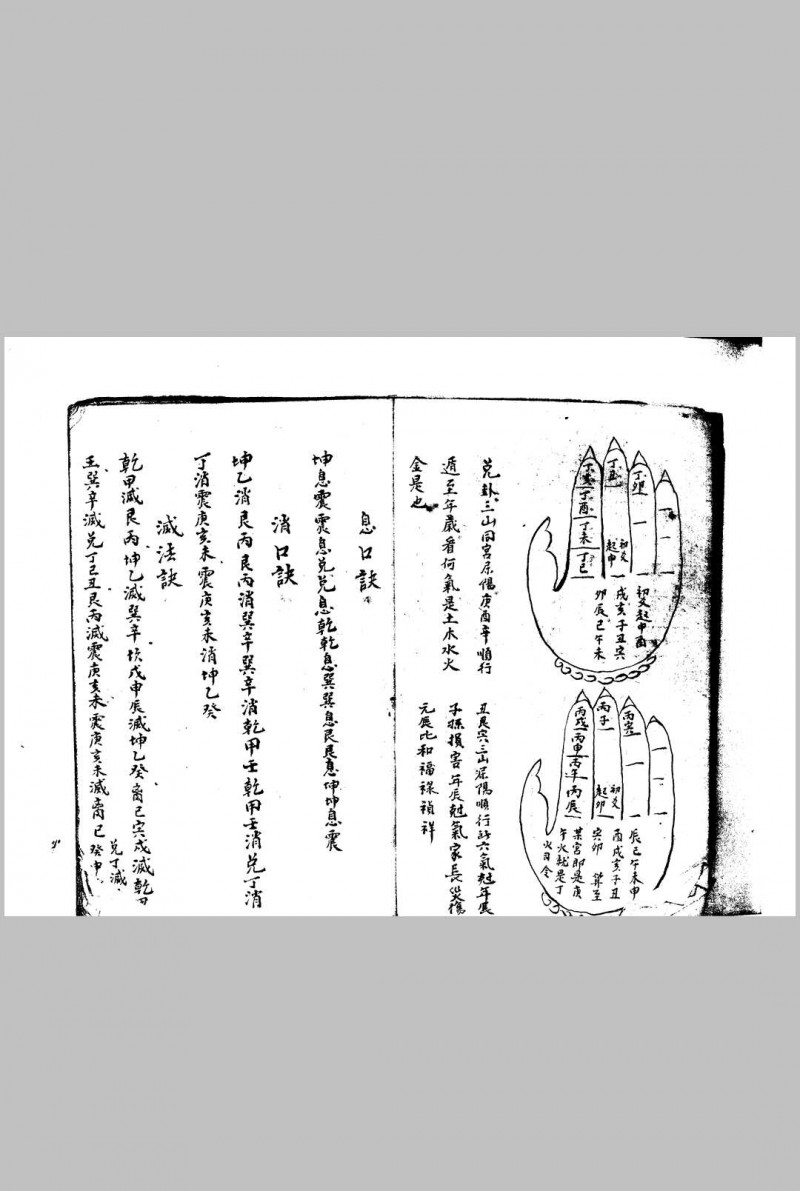 丁卯
丁丑
初爻
起申
丁亥
丁酉
丁未
丁巳
初爻起申酉
戌亥子丑寅
卯辰巳午未
丙寅
丙子
初爻
起卯
丙戌
丙申
丙午
丙辰
辰巳午未申
酉戌亥子丑
寅卯 算至
某宮即是庚
午火就是丁
火司令
兌卦三山同宮屬陽庚酉辛順行
遁至年歲看何氣是土木水火
金是也
丑艮寅三山屬陽順行訣六氣尅年辰
子孫損害年辰尅氣家長災傷
元辰比和福祿禎祥
息口訣
坤息震震息兌兌息乾乾息巽巽息艮艮息坤坤息震
消口訣
坤乙消艮丙艮丙消巽辛巽辛消乾甲壬乾甲壬消兌丁消
丁消震庚亥未震庚亥未消坤乙癸
滅法訣
乾甲滅艮丙坤乙滅巽辛坎戊申辰滅坤乙癸离己寅戌滅乾甲
壬巽辛滅兌丁巳丑艮丙滅震庚亥未震庚亥未滅离己
兌丁滅
癸申